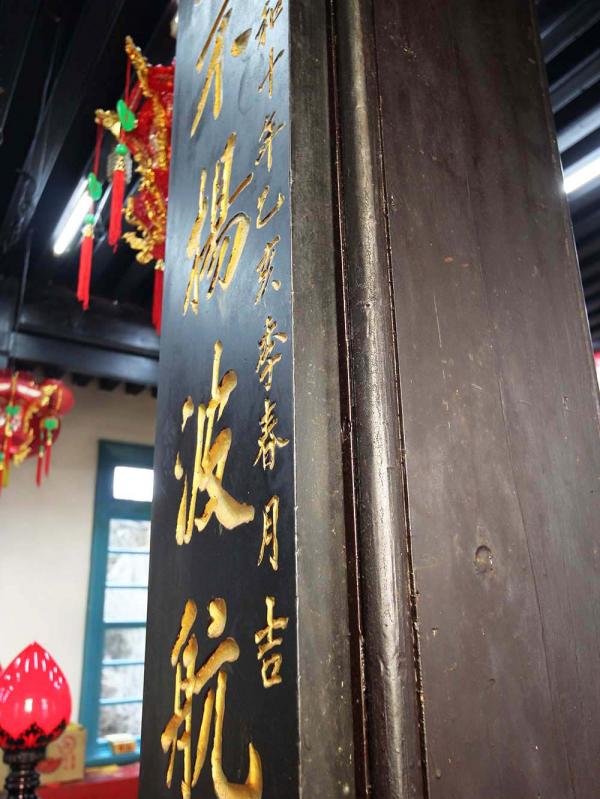 和十年乙亥季春月吉
不揚波航